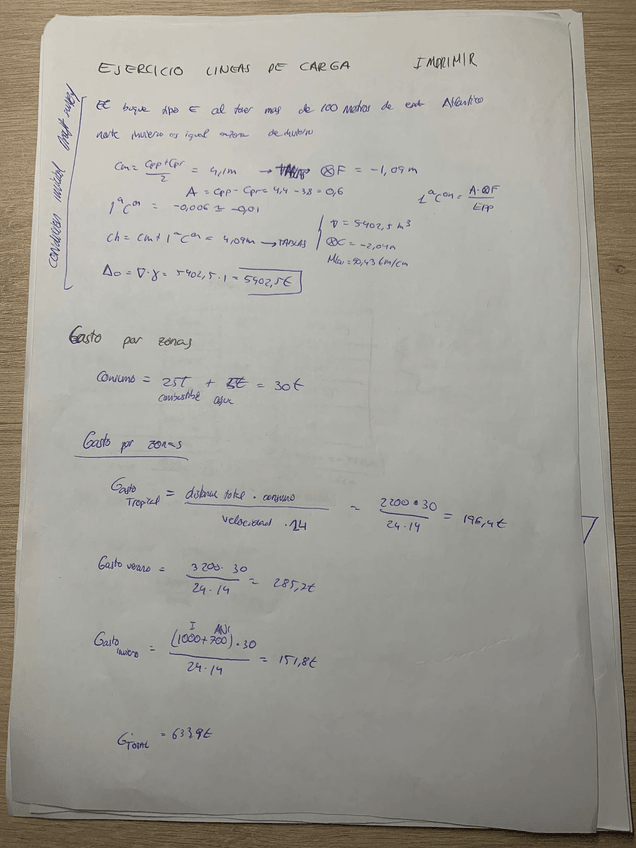 EJERCICIO LINEAS DE CARGA IMPRIMIR
El buque tipo E al tener mas de 100 Metros de Atlantico
norte invierno es igual
condicion inicial
Cm = Cpp+Cpr / 2 = 4,1m → TABLAS ⊗F = -1,09 m
A = Cpp - Cpr = 4,4 - 3,8 = 0,6
1ªCon = A·⊗F / EPP
1ªCon = -0,006 ≅ -0,01
Ch = Cm + 1ªCon = 4,09m → TABLAS
∇ = 5402,5 m³
⊗C = -2,04m
Δo = ∇·γ = 5402,5·1 = 5402,5t
Gasto por zonas
Consumo = 25T + 5t = 30t
combustible agua
Gasto por zonas
Gasto Tropical = distancia total · consumo / velocidad · 24 = 2200·30 / 24·14 = 196,4t
Gasto verano = 3200·30 / 24·14 = 285,7t
I ANI
Gasto invierno = (1000+700)·30 / 24·14 = 151,8t
G TOTAL = 633,9t